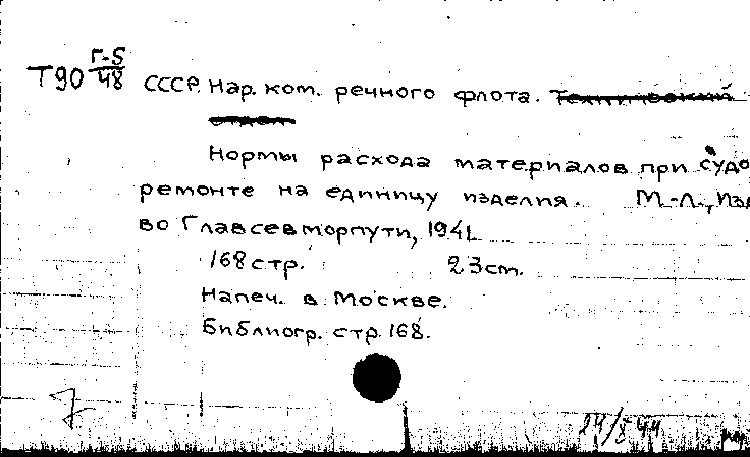 Т90 Г-5/48 СССР. Нар. ком. речного флота. Технический
отдел
Нормы расхода материалов при судо
ремонте на единицу изделия. М.-Л., Изд
во Главсевморпути, 1941
168 стр. 23 cm.
Напеч. в Москве.
Библиогр. стр. 168.
7